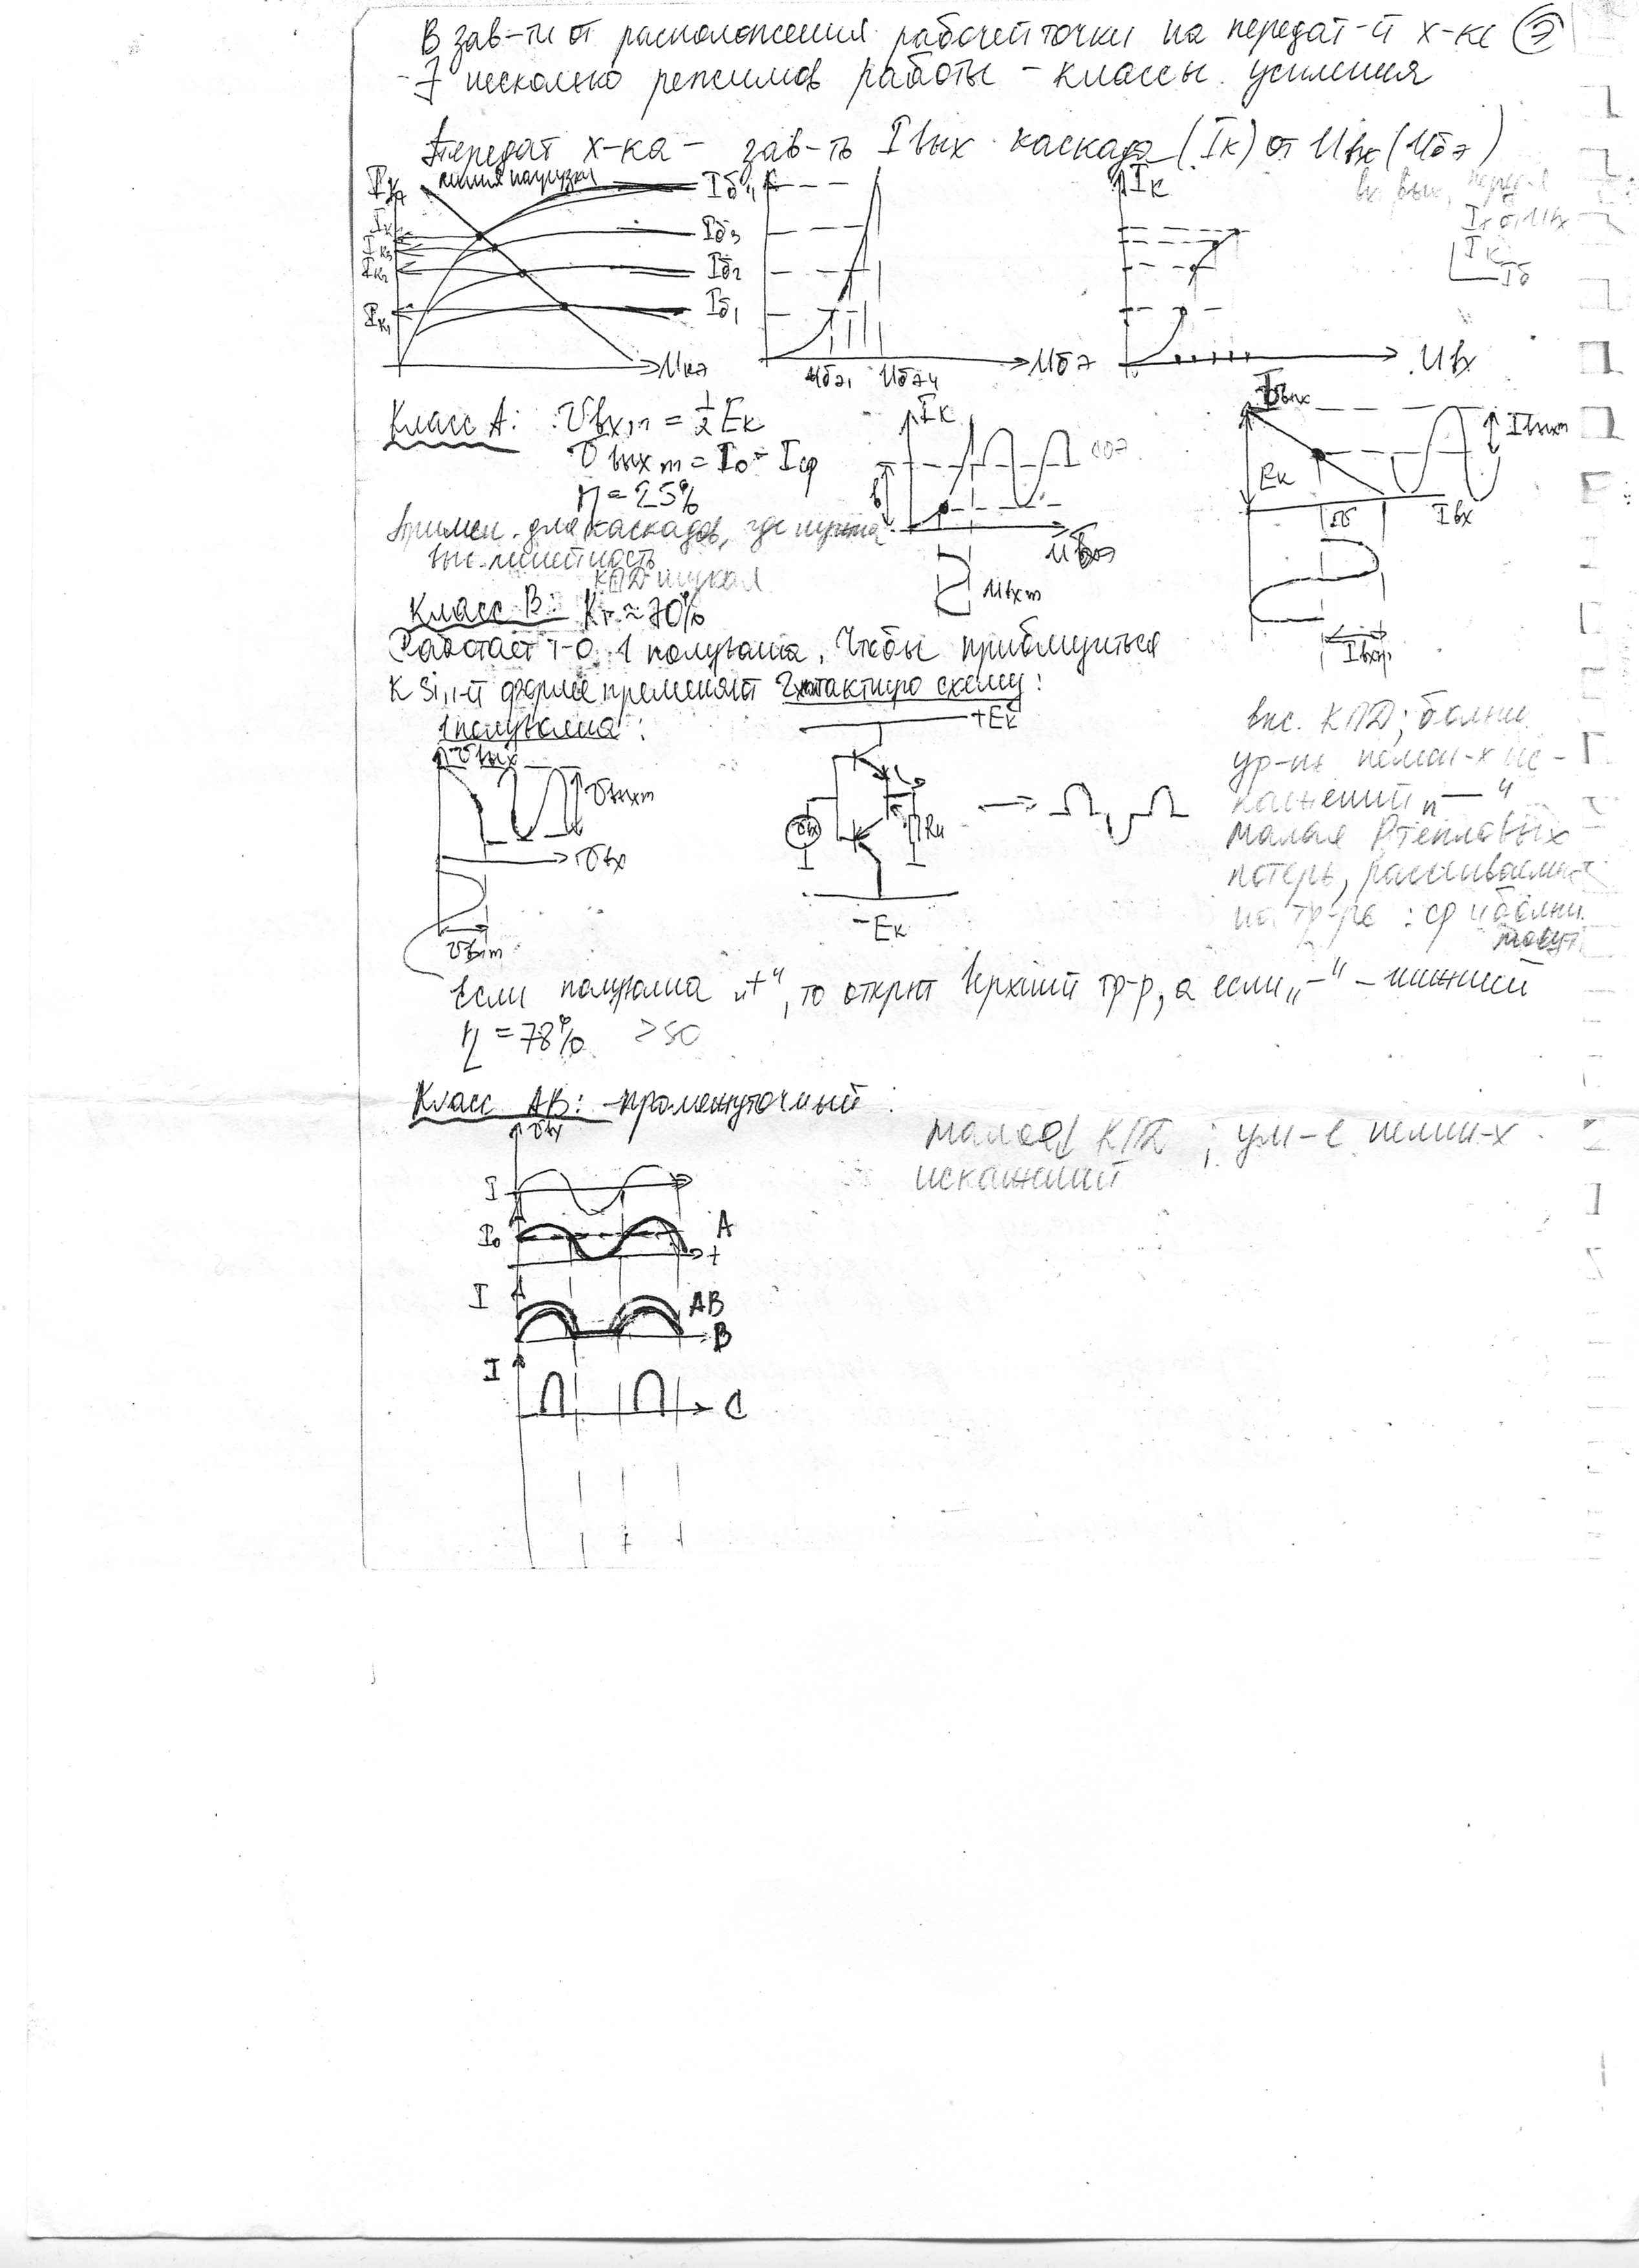 В зав-ти от расположения рабочей точки на передат-й х-ке
∃ несколько режимов работы – классы усиления
Передат х-ка – зав-ть Iвых каскада (Iк) от Uвх (Uбэ)
линия нагрузки
Iк Iб4 Iк
Iб3
Iк3
Iк2 Iб2
Iк1 Iб1
Uкэ Uбэ1 Uбэ4 Uбэ Uвх
Iк от Uвх
Iк
Iб
Класс А: Uвхm = 1/2 Eк
Iк
Uвыхm = I0 = Iср
η = 25%
Iвыхm
Eк
Iвх
Примен. для каскадов, где нужна
выс. линейность
КПД низкая
Uвхm
Iвхm
Класс В: Kг ≈ 70%
Работает т-о 1 полуволна. Чтобы приблизиться
к Sin-й форме применяют 2хтактную схему:
1 полуволна:
+Eк
Uвых
Uвыхm
Uвх
Uвх
Rн
-Eк
Uвхm
выс. КПД; больш.
ур-нь нелин-х ис-
кажений „—“
малая Pтепловых
потерь, рассеиваемых
на тр-ре
Если полуволна „+“, то открыт верхний тр-р, а если „-“ – нижний
η = 78% >50
Класс АВ: – промежуточный
малое КПД ; ум-е нелин-х
искажений
Uвх
I
I0 A
t
I AB
B
I
C